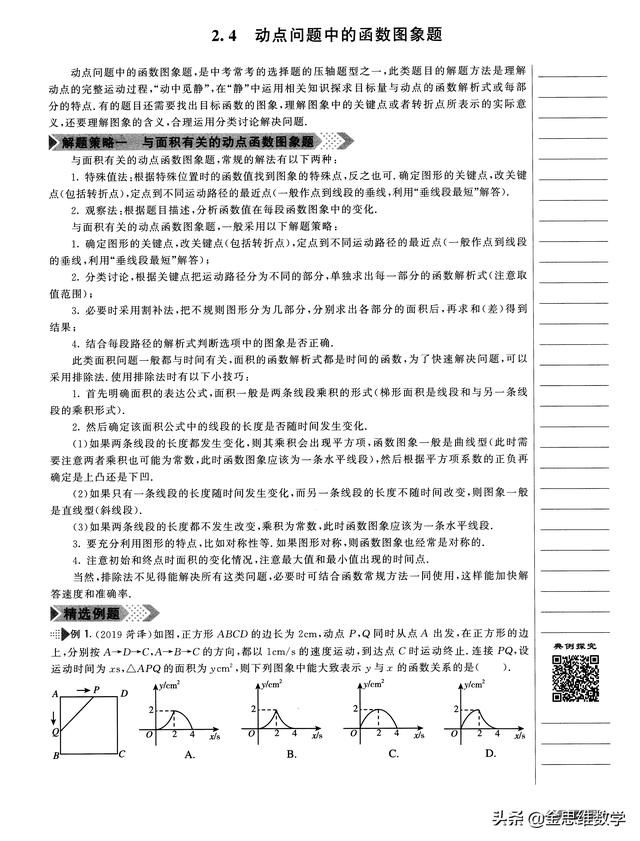 2.4 动点问题中的函数图象题
动点问题中的函数图象题,是中考常考的选择题的压轴题型之一,此类题目的解题方法是理解
动点的完整运动过程,“动中觅静”,在“静”中运用相关知识探求目标量与动点的函数解析式或每部
分的特点.有的题目还需要找出目标函数的图象,理解图象中的关键点或者转折点所表示的实际意
义,还要理解图象的含义,合理运用分类讨论解决问题.
解题策略一 与面积有关的动点函数图象题
与面积有关的动点函数图象题,常规的解法有以下两种:
1. 特殊值法:根据特殊位置时的函数值找到图象的特殊点,反之也可.确定图形的关键点,改关键
点(包括转折点),定点到不同运动路径的最近点(一般作点到线段的垂线,利用“垂线段最短”解答).
2. 观察法:根据题目描述,分析函数值在每段函数图象中的变化.
与面积有关的动点函数图象题,一般采用以下解题策略:
1. 确定图形的关键点,改关键点(包括转折点),定点到不同运动路径的最近点(一般作点到线段
的垂线,利用“垂线段最短”解答);
2. 分类讨论,根据关键点把运动路径分为不同的部分,单独求出每一部分的函数解析式(注意取
值范围);
3. 必要时采用割补法,把不规则图形分为几部分,分别求出各部分的面积后,再求和(差)得到
结果;
4. 结合每段路径的解析式判断选项中的图象是否正确.
此类面积问题一般都与时间有关,面积的函数解析式都是时间的函数,为了快速解决问题,可以
采用排除法.使用排除法时有以下小技巧:
1. 首先明确面积的表达公式,面积一般是两条线段乘积的形式(梯形面积是线段和与另一条线
段的乘积形式).
2. 然后确定该面积公式中的线段的长度是否随时间发生变化.
(1)如果两条线段的长度都发生变化,则其乘积会出现平方项,函数图象一般是曲线型(此时需
要注意两者乘积也可能为常数,此时函数图象应该为一条水平线段),然后根据平方项系数的正负再
确定是上凸还是下凹.
(2)如果只有一条线段的长度随时间发生变化,而另一条线段的长度不随时间改变,则图象一般
是直线型(斜线段).
(3)如果两条线段的长度都不发生改变,乘积为常数,此时函数图象应该为一条水平线段.
3. 要充分利用图形的特点,比如对称性等.如果图形对称,则函数图象也经常是对称的.
4. 注意初始和终点时面积的变化情况,注意最大值和最小值出现的时间点.
当然,排除法不见得能解决所有这类问题,必要时可结合函数常规方法一同使用,这样能加快解
答速度和准确率.
精选例题
例 1. (2019 菏泽)如图,正方形 ABCD 的边长为 2cm,动点 P,Q 同时从点 A 出发,在正方形的边
上,分别按 A→D→C,A→B→C 的方向,都以 1cm/s 的速度运动,到达点 C 时运动终止.连接 PQ,设
运动时间为 xs,△APQ 的面积为 ycm²,则下列图象中能大致表示 y 与 x 的函数关系的是( ).
典例探究
A P D
Q
B C
y/cm² 2 O 2 4 x/s
A.
y/cm² 2 O 2 4 x/s
B.
y/cm² 2 O 2 4 x/s
C.
y/cm² 2 O 2 4 x/s
D.
头条 @金思维数学